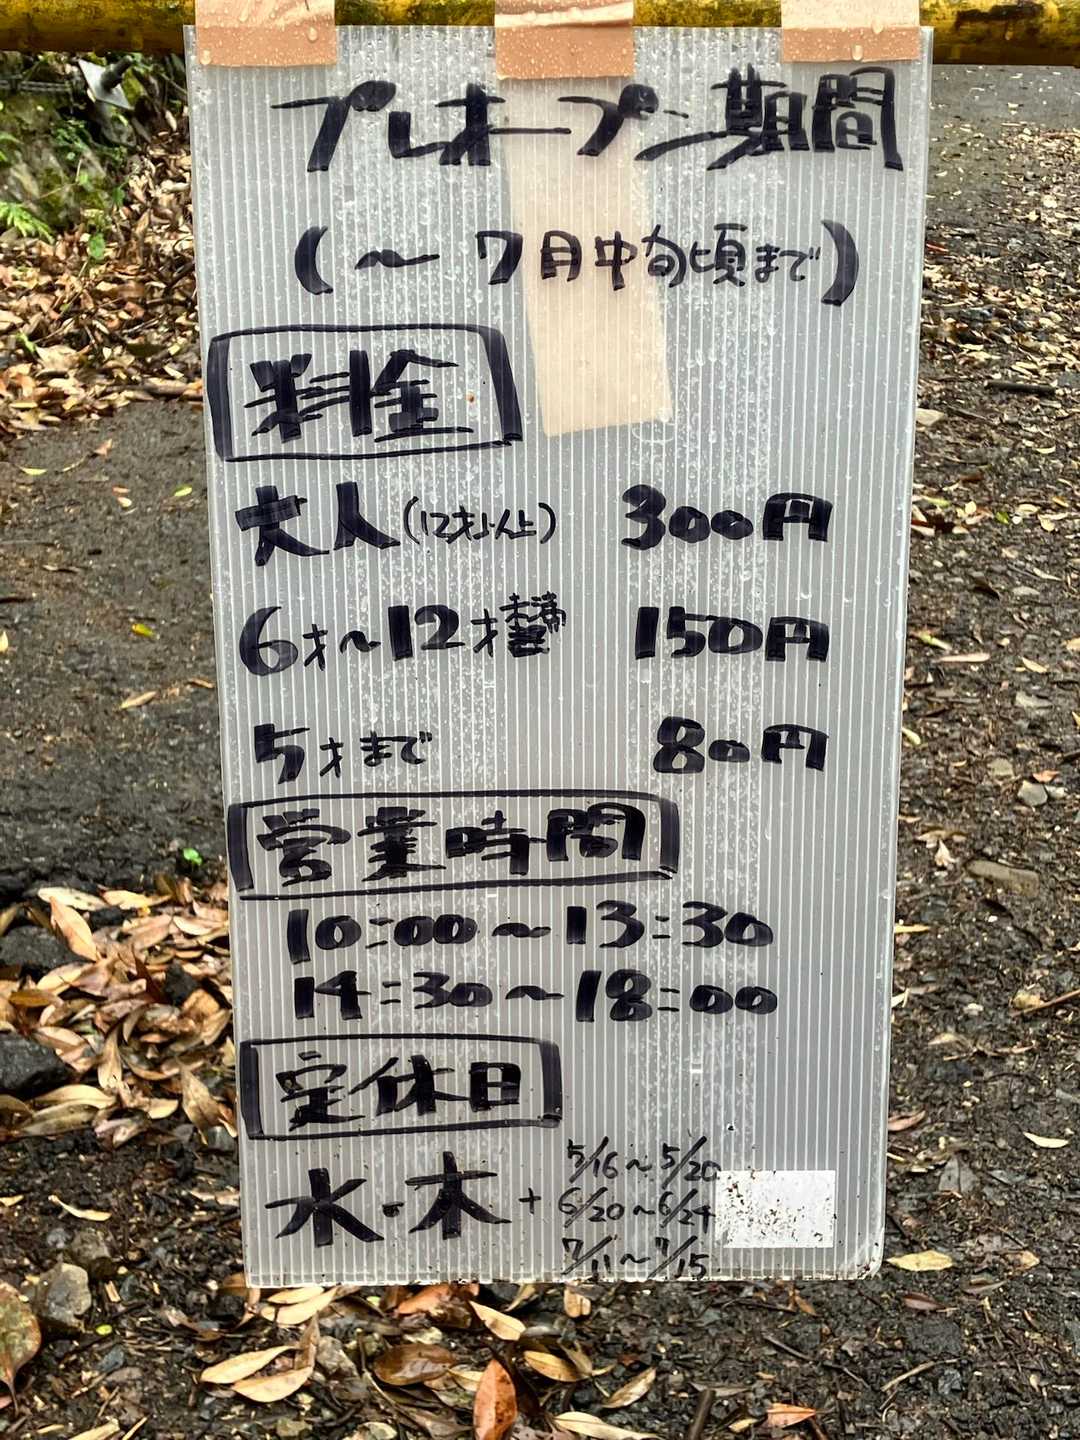 プレオープン期間
(～7月中旬頃まで)
料金
大人(12才以上) 300円
6才～12才未満 150円
5才まで 80円
営業時間
10:00～13:30
14:30～18:00
定休日
水・木 + 5/16～5/20
6/20～6/24
7/11～7/15